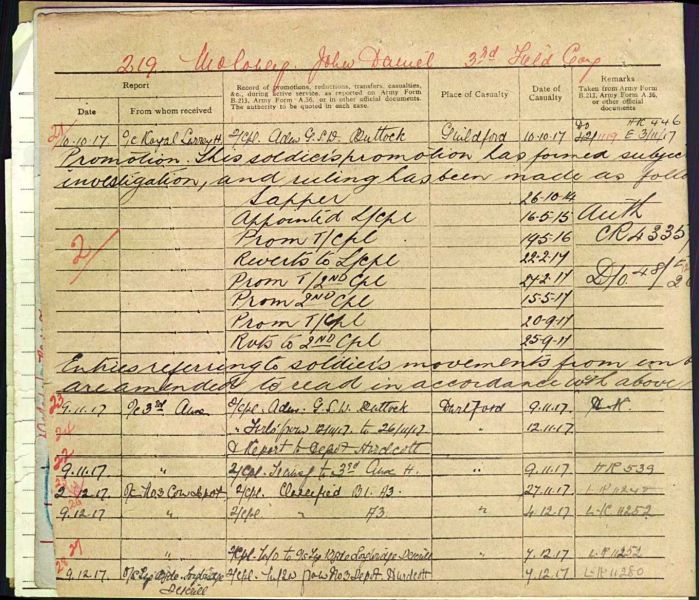 219 Moloney. John Daniel 3rd Field Coy
Report
Record of promotions, reductions, transfers, casualties, &c., during active service, as reported on Army Form B.213, Army Form A.36, or in other official documents. The authority to be quoted in each case.
Place of Casualty
Date of Casualty
Remarks
Taken from Army Form B.213, Army Form A.36, or other official documents
Date
From whom received
10-10-17 O/c Royal Surrey H. 2/Cpl. Adm G.S.W. Buttock Guildford 10-10-17 HR 446 E 3/11/17
Promotion. This soldier's promotion has formed subjec
investigation, and ruling has been made as follo
Sapper 26-10-14
Appointed L/cpl 16-5-15 Auth
2 Prom T/Cpl 19-5-16 CR 4335
Reverts to L/cpl 22-2-17
Prom T/2ND Cpl 27-2-17 D/o. 48/
Prom 2ND Cpl 15-5-17
Prom T/Cpl 20-9-17
Rvts to 2ND Cpl 25-9-17
Entries referring to soldier's movements from em
are amended to read in accordance with above
23 9.11.17 O/c 3rd Aux 2/Cpl. Adm. G.S.W. Buttock Dartford 9.11.17 H.R.
24 " Furlo from 12/11/17 to 26/11/17 12.11.17
& Report to Depot Hurdcott
22 9.11.17 " 2/Cpl. Transf to 3rd Aux H. " 9.11.17 HR 539
2 12.17 O/c No 3 Com Depot 2/Cpl. Classified B1. A3. 27.11.17
9.12.17 " 2/Cpl. " A3. " 4.12.17 L-R 11252
27 " 2/Cpl. to Longbridge Deverill " 7.12.17 L-R 11252
28 9.12.17. Longbridge Deverill 2/Cpl. from No 3 Depot Hurdcott 7.12.17 L-R 11280